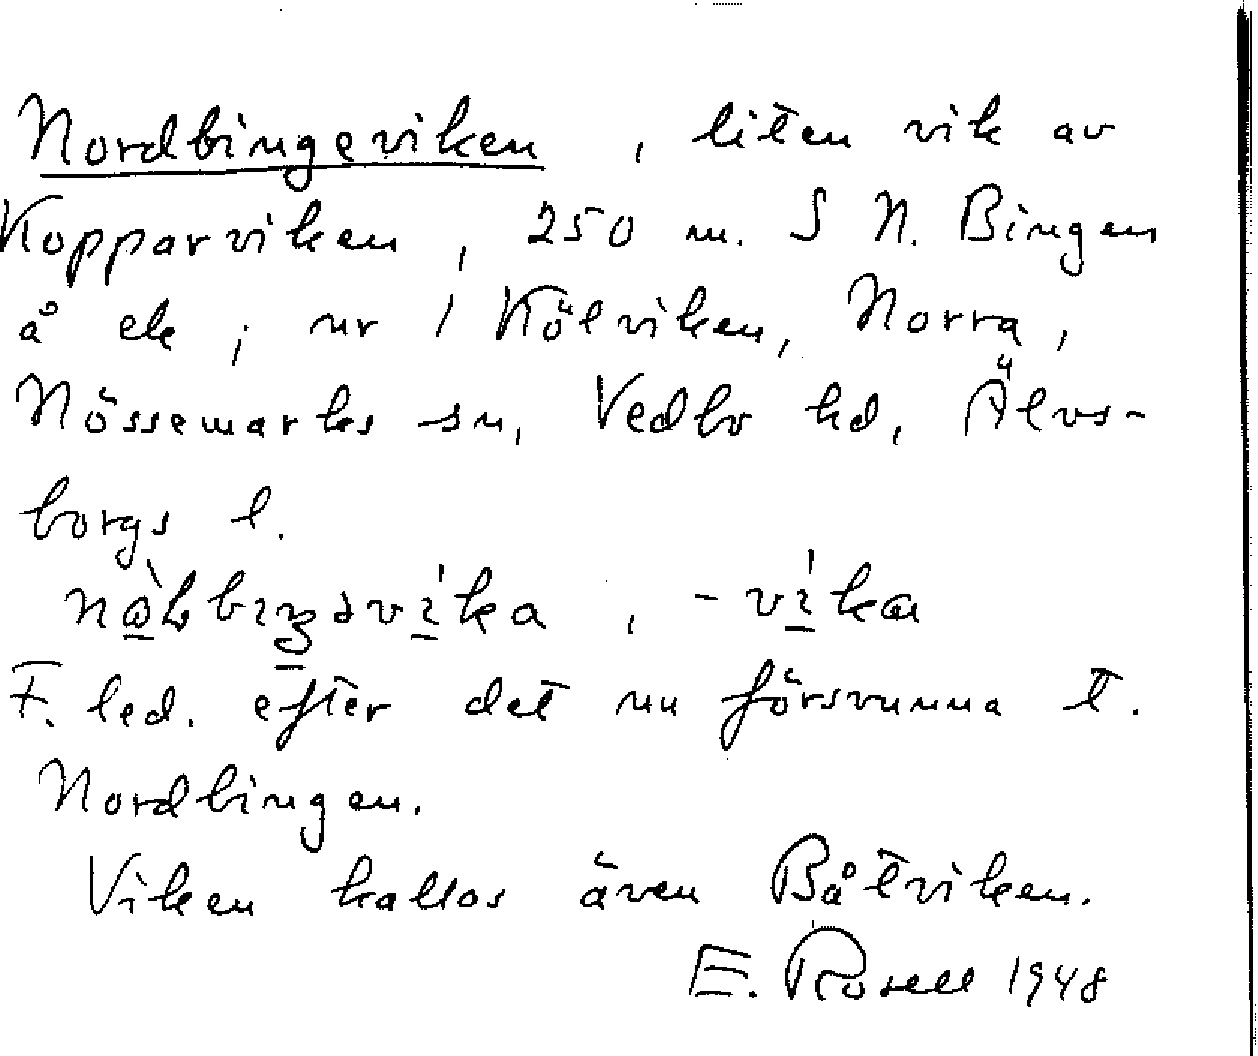 Nordbingeviken, liten vik av
Kopparviken, 250 m. S N. Bingen
å ek; nr 1 Kölviken, Norra,
Nössemarks sn, Vedbo hd, Älvs-
borgs l.
F. led. efter det nu försvunna t.
Nordbingen.
Viken kallas även Båtviken.
E. Rosell 1948